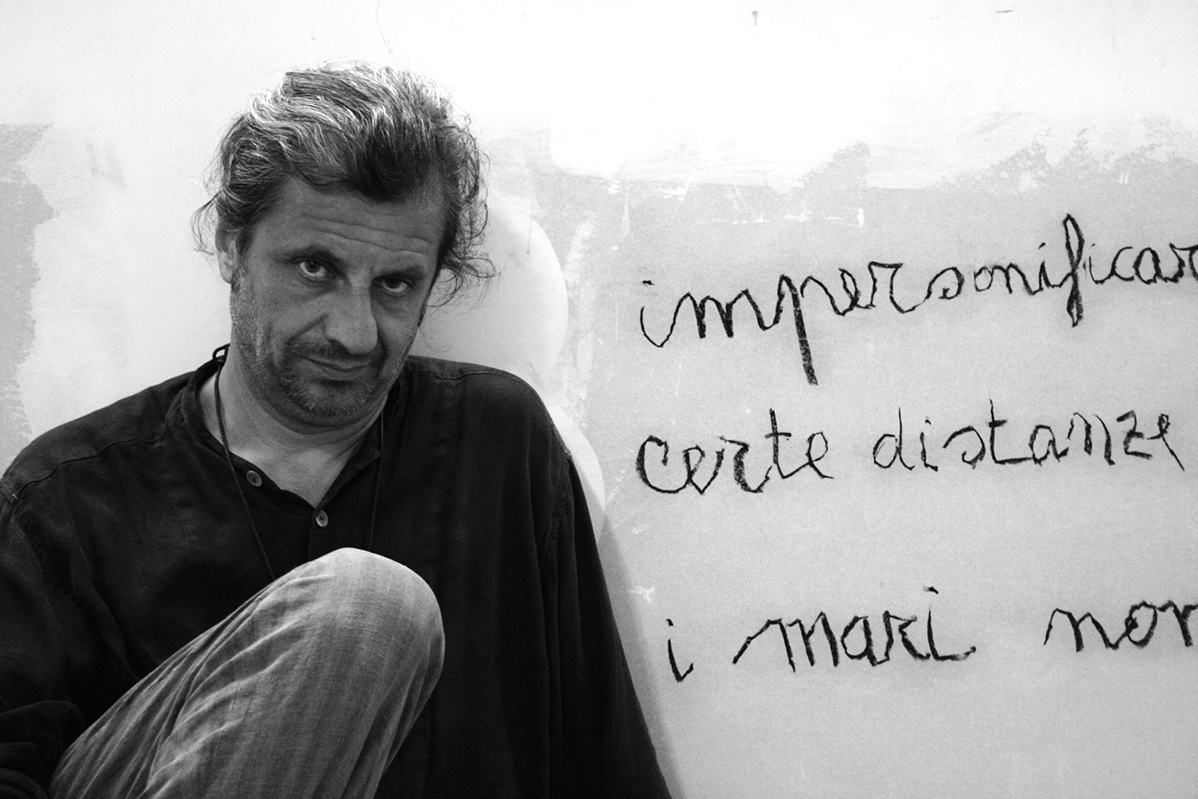 impersonificar
certe distanze
i mari non